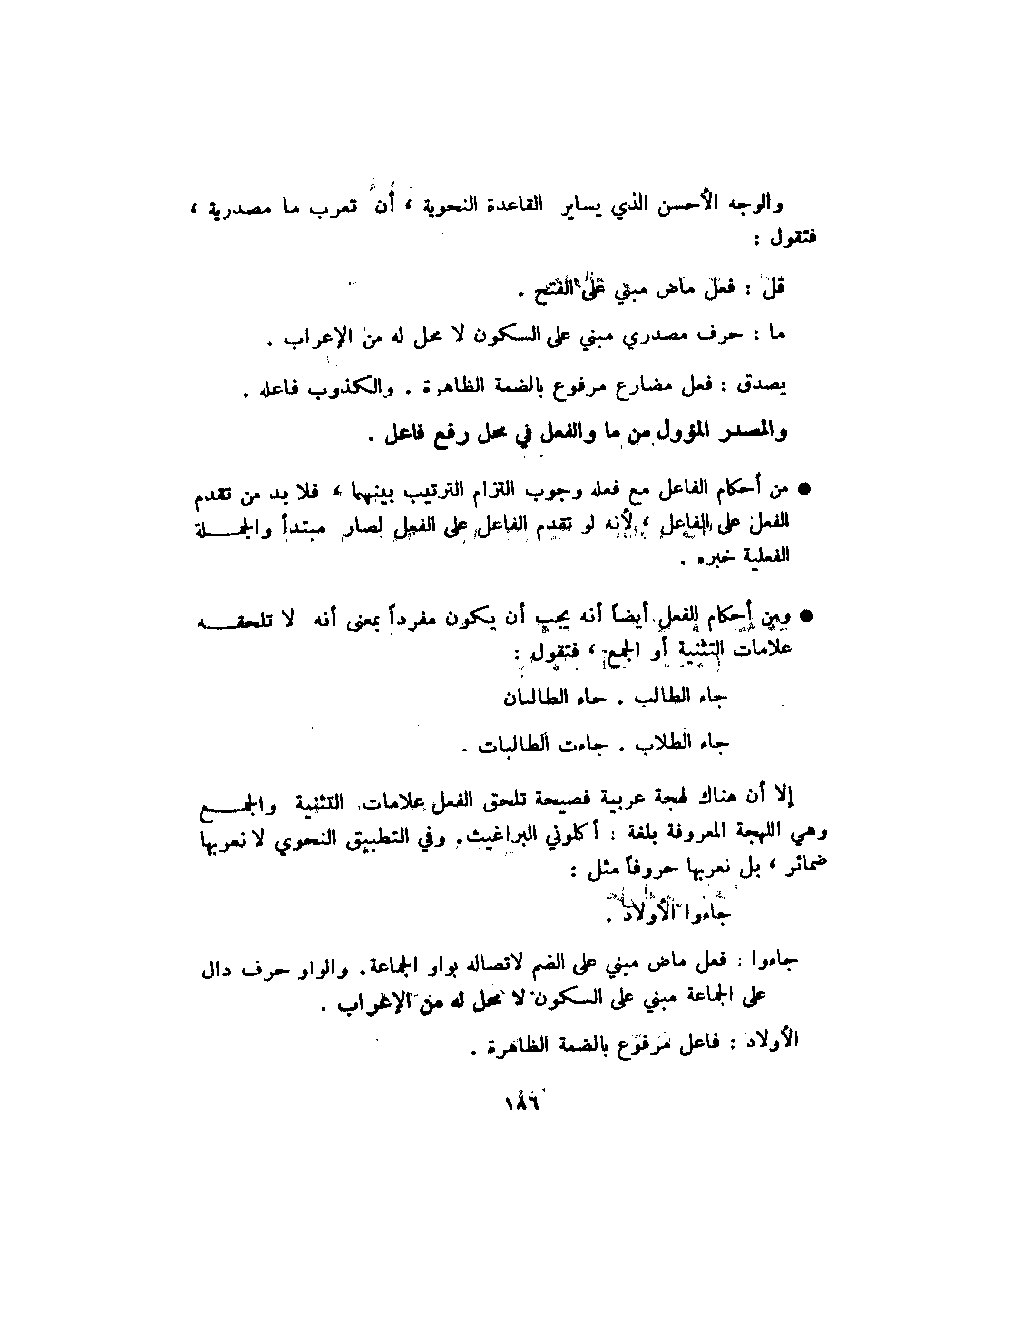 والوجه الأحسن الذي يساير القاعدة النحوية ، أن تعرب ما مصدرية ،
فتقول :
قل : فعل ماض مبني على الفتح .
ما : حرف مصدري مبني على السكون لا محل له من الإعراب .
يصدق : فعل مضارع مرفوع بالضمة الظاهرة . والكذوب فاعله .
والمصدر المؤول من ما والفعل في محل رفع فاعل .
● من أحكام الفاعل مع فعله وجوب التزام الترتيب بينهما ، فلا بد من تقدم
الفعل على الفاعل ، لأنه لو تقدم الفاعل على الفعل لصار مبتدأ والجمـــلة
الفعلية خبره .
● ومن أحكام الفعل أيضاً أنه يجب أن يكون مفرداً بمعنى أنه لا تلحقـــه
علامات التثنية أو الجمع ، فتقول :
جاء الطالب . جاء الطالبان
جاء الطلاب . جاءت الطالبات .
إلا أن هناك لهجة عربية فصيحة تلحق الفعل علامات التثنية والجمـــع
وهي اللهجة المعروفة بلغة : أكلوني البراغيث . وفي التطبيق النحوي لا نعربها
ضمائر ، بل نعربها حروفاً مثل :
جاءوا الأولاد .
جاءوا : فعل ماض مبني على الضم لاتصاله بواو الجماعة . والواو حرف دال
على الجماعة مبني على السكون لا محل له من الإعراب .
الأولاد : فاعل مرفوع بالضمة الظاهرة .
١٨٦